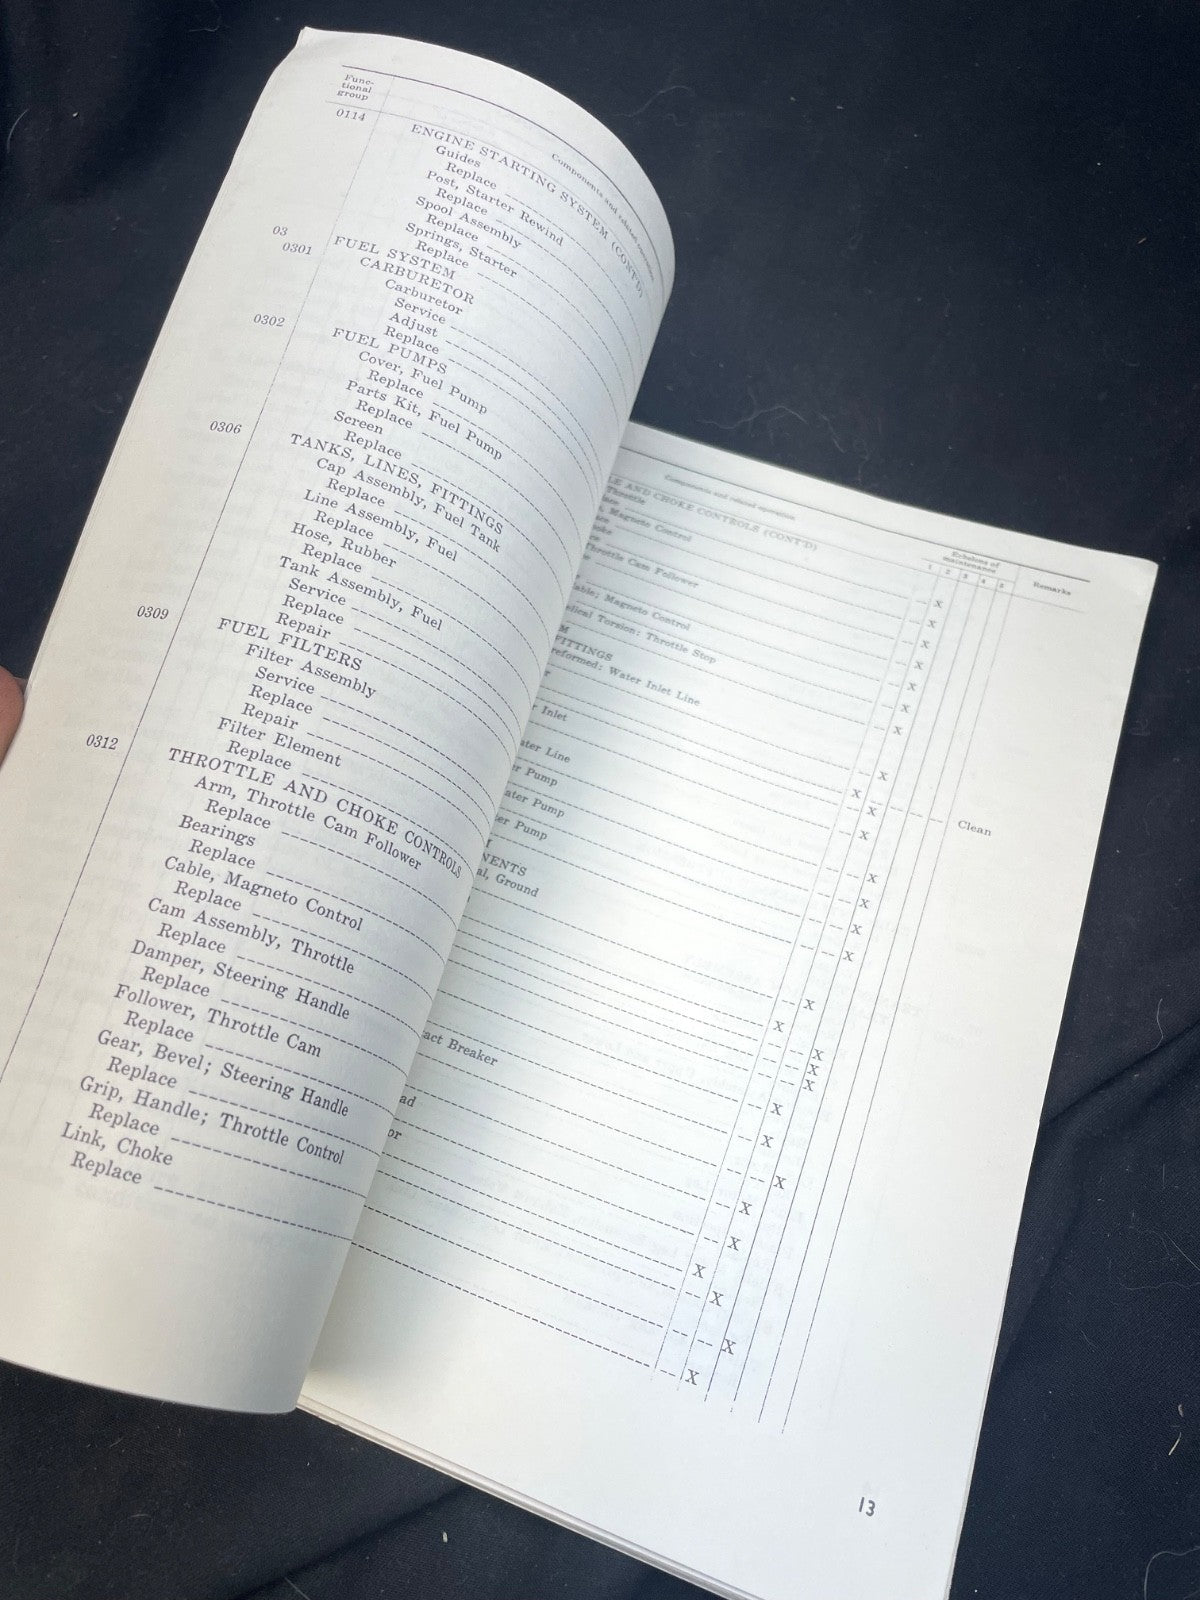 Func-
tional
group
Components and related operation
0114
ENGINE STARTING SYSTEM (CONT'D)
Guides
Replace
Post, Starter Rewind
Replace
Spool Assembly
Replace
Springs, Starter
Replace
03
FUEL SYSTEM
0301
CARBURETOR
Carburetor
Service
Adjust
Replace
0302
FUEL PUMPS
Cover, Fuel Pump
Replace
Parts Kit, Fuel Pump
Replace
Screen
Replace
0306
TANKS, LINES, FITTINGS
Cap Assembly, Fuel Tank
Replace
Line Assembly, Fuel
Replace
Hose, Rubber
Replace
Tank Assembly, Fuel
Service
Replace
Repair
0309
FUEL FILTERS
Filter Assembly
Service
Replace
Repair
Filter Element
Replace
0312
THROTTLE AND CHOKE CONTROLS
Arm, Throttle Cam Follower
Replace
Bearings
Replace
Cable, Magneto Control
Replace
Cam Assembly, Throttle
Replace
Damper, Steering Handle
Replace
Follower, Throttle Cam
Replace
Gear, Bevel; Steering Handle
Replace
Grip, Handle; Throttle Control
Replace
Link, Choke
Replace
Components and related operation
Echelons of
maintenance
1 2 3 4 5
Remarks
LE AND CHOKE CONTROLS (CONT'D)
Throttle
X
Magneto Control
X
X
Throttle Cam Follower
X
X
able; Magneto Control
X
elical Torsion; Throttle Stop
X
M
FITTINGS
reformed; Water Inlet Line
X
r Inlet
X
Clean
X
ater Line
X
er Pump
X
ater Pump
X
ter Pump
X
X
NENTS
al, Ground
X
X
X
X
X
X
act Breaker
X
X
ad
X
or
X
X
X
X
X
13